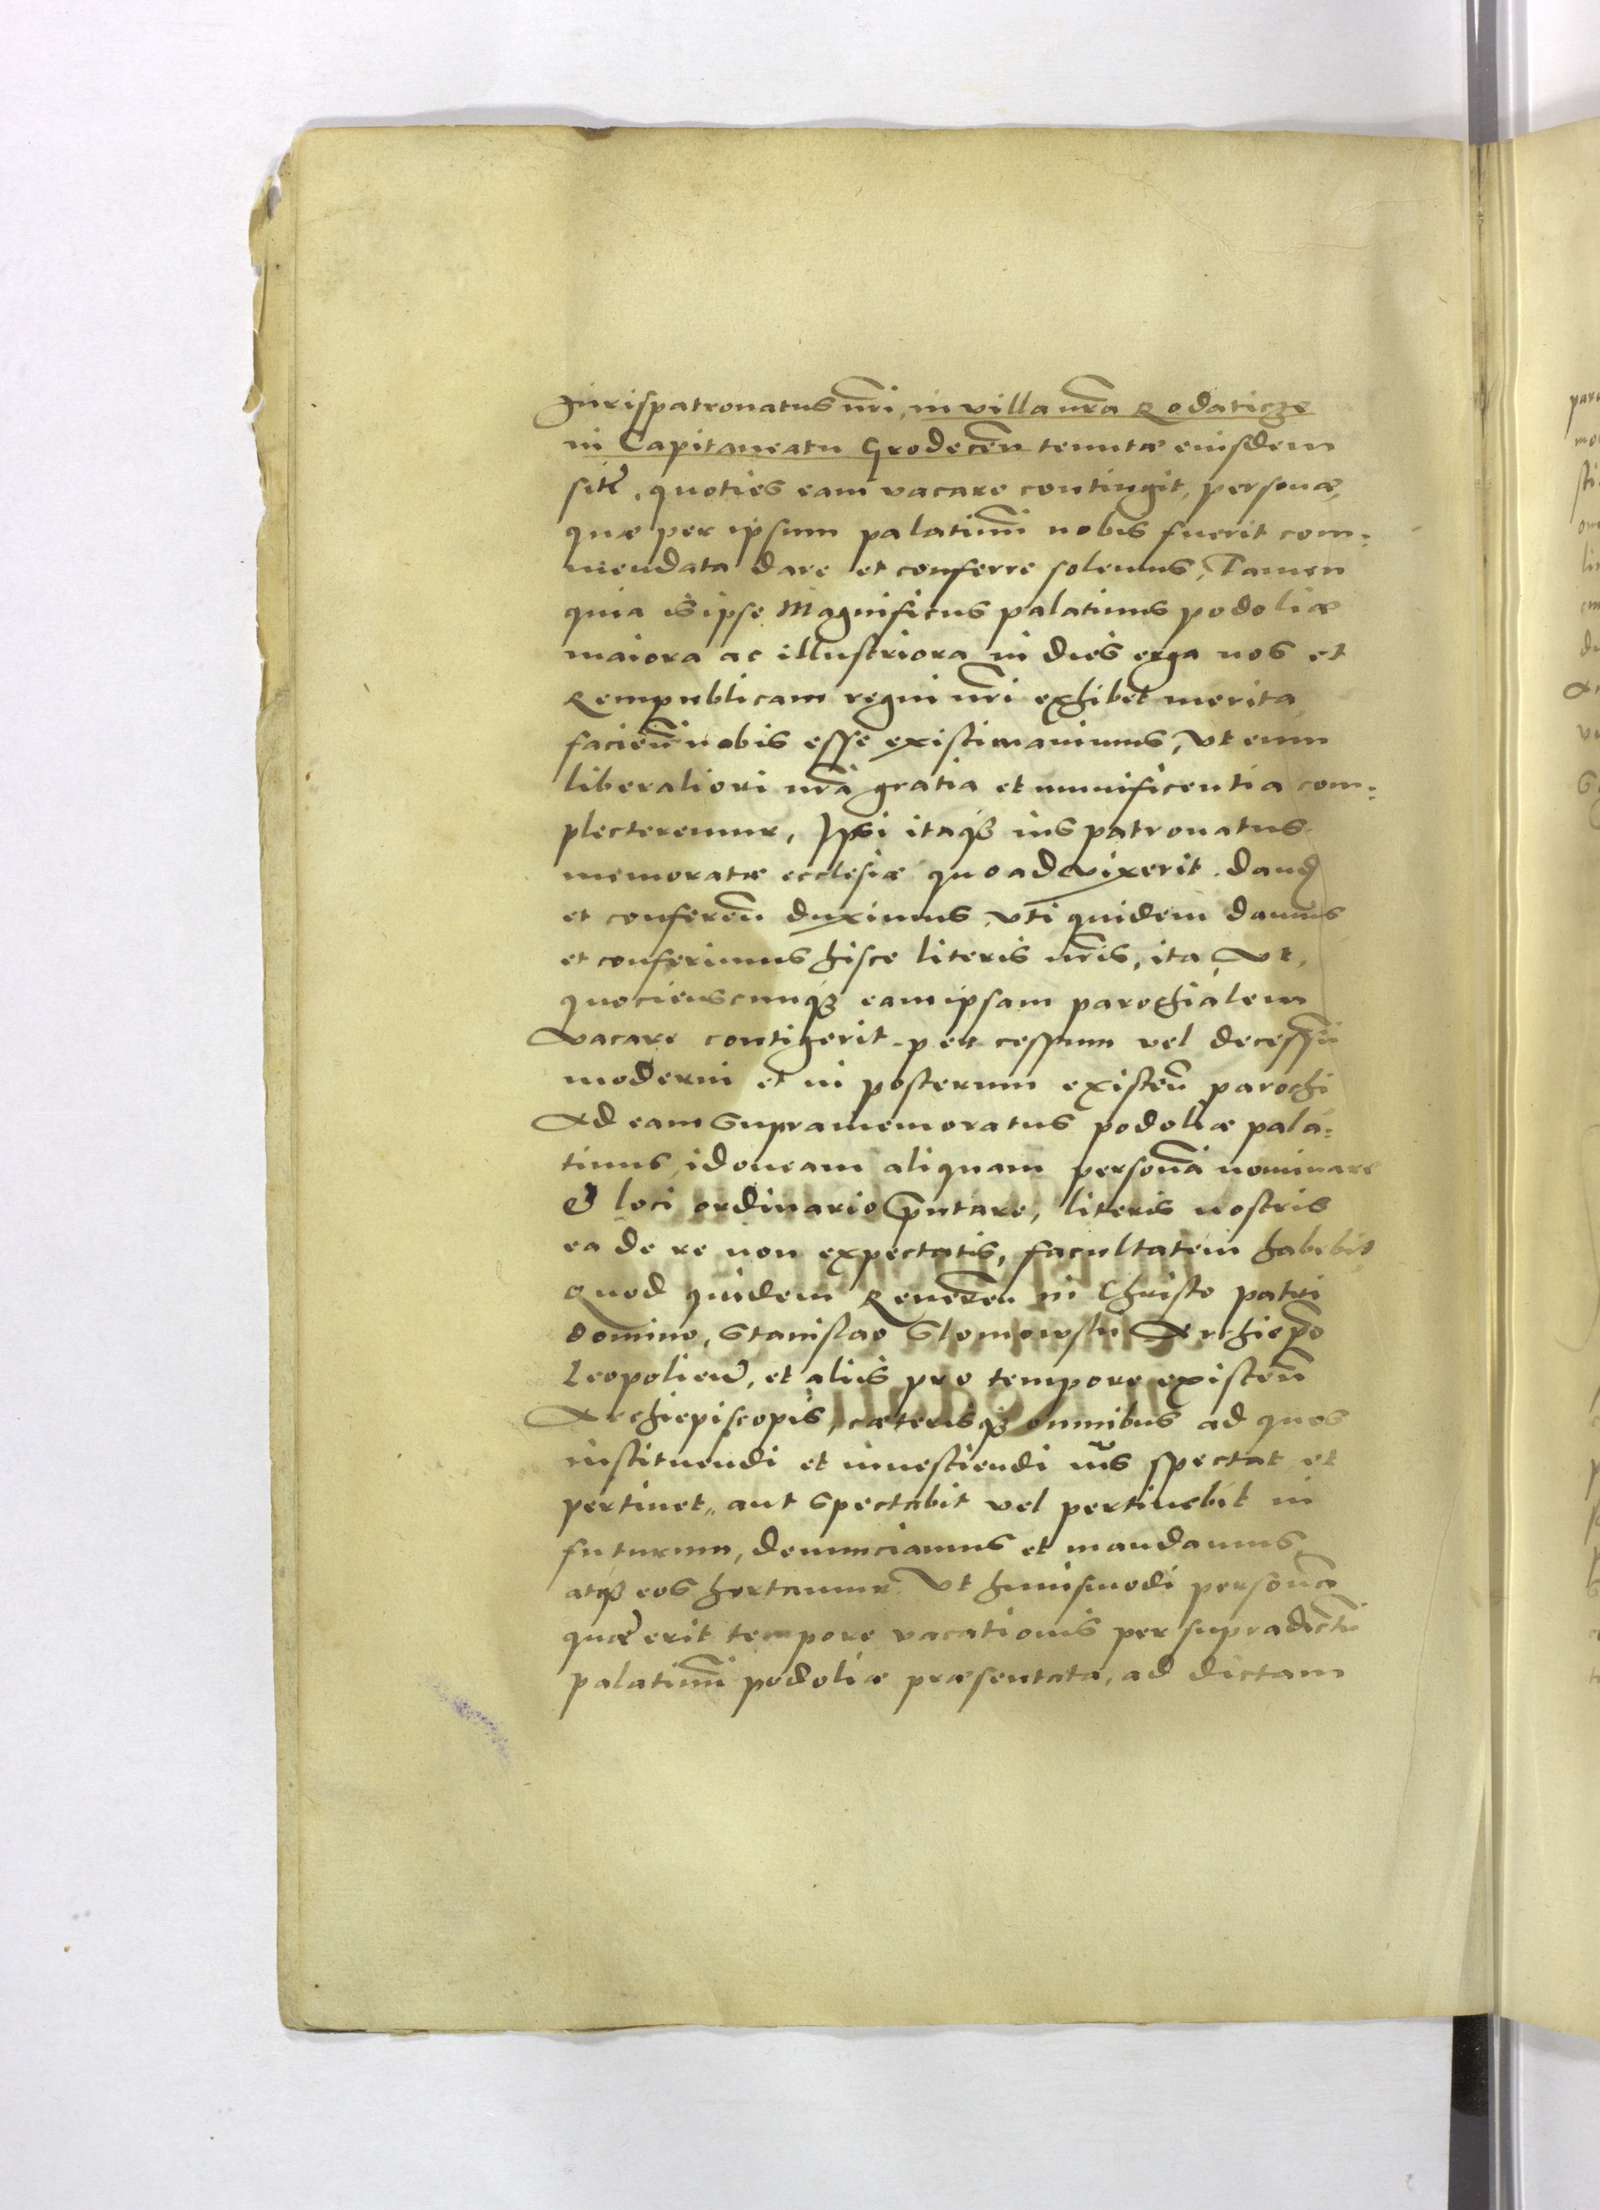 Jurispatronatus nr̃i, in villa nr̃a Rodaticze
in Capitaneatu Grodeceñ tenutæ eiusdem
sitã, quoties eam vacare contingit, personæ,
quæ per ipsum palatinũ nobis fuerit com:
mendata dare et conferre solemus, Tamen
quia is ipse Magnificus palatinus podoliæ
maiora ac illustriora in dies erga nos et
Rempublicam regni nr̃i exhibet merita,
facieñ nobis esse existimavimus, vt eum
liberaliori nr̃a gratia et munificentia com:
plecteremur, Ipsi itaq₃ ius patronatus
memoratæ ecclesiæ quoad vixerit dand
et confereñ duximus, vti quidem damus
et conferimus hisce literis nr̃is, ita, vt,
quocienscunq₃ eam ipsam parochialem
vacare contigerit per cessum vel decessũ
moderni et in posterum existeñ parochi
Ad eam supramemoratus podoliæ pala:
tinus idoneam aliquam personã nominare
& loci ordinario p̃ntare, literis nostris
ea de re non expectatis, facultatem habebit
Quod quidem Revereñ in Christo patri
domino, Stanislao Slomowski Archiep̃o
Leopolieñ, et aliis pro tempore existeñ
Archiepiscopis, cæterisq₃ omnibus ad quos
instituendi et investiendi ius spectat et
pertinet, aut spectabit vel pertinebit in
futurum, denunciamus et mandamus,
atq₃ eos hortamur vt huiusmodi personã
quæ erit tempore vacationis per supradictũ
palatinũ podoliæ præsentata, ad dictam